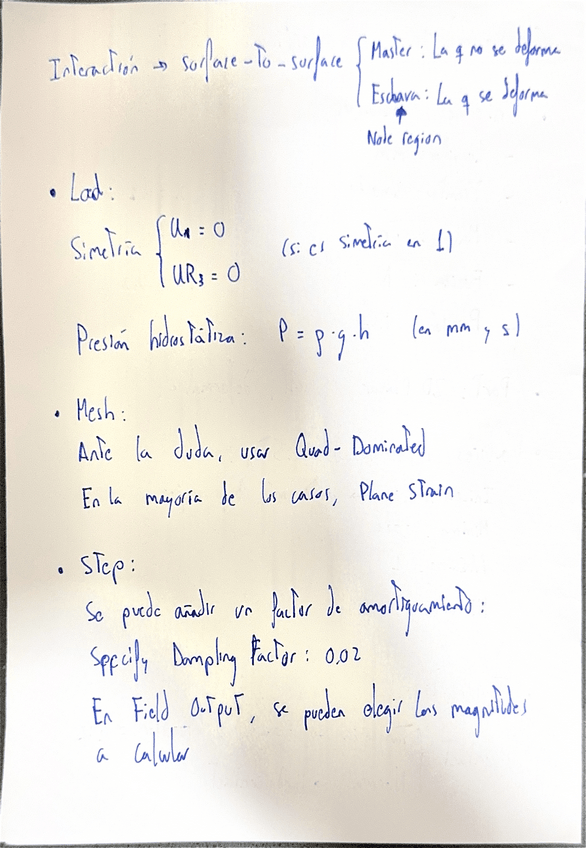 Interacción → surface-to-surface { Master: La q no se deforma
Esclava: La q se deforma
Node region
• Load:
Simetría { U1 = 0 (si es simetría en 1)
UR3 = 0
Presión hidrostática: P = ρ·g·h (en mm y s)
• Mesh:
Ante la duda, usar Quad-Dominated
En la mayoría de los casos, Plane Strain
• Step:
Se puede añadir un factor de amortiguamiento:
Specify Dampling Factor: 0,02
En Field Output, se pueden elegir las magnitudes
a calcular